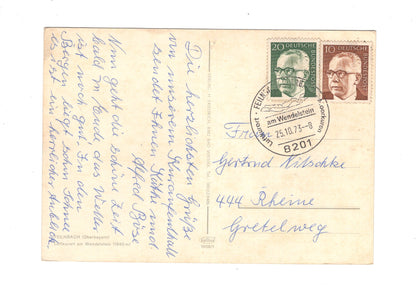 Die herzlichsten Grüße
von unserem Kuraufenthalt
sendet Ihnen Käthe und
Alfred Böse
Nun geht die schöne Zeit
bald zu Ende, das Wetter
ist noch gut. In den
Bergen liegt schon Schnee
es ist ein herrlicher Anblick.
20 DEUTSCHE BUNDESPOST
10 DEUTSCHE BUNDESPOST
am Wendelstein
25.10.73-8
8201
Luftkurort
Frau
Gertrud Nitschke
444 Rheine
Gretelweg
FEILNBACH (Oberbayern)
Luftkurort am Wendelstein (1840 m)